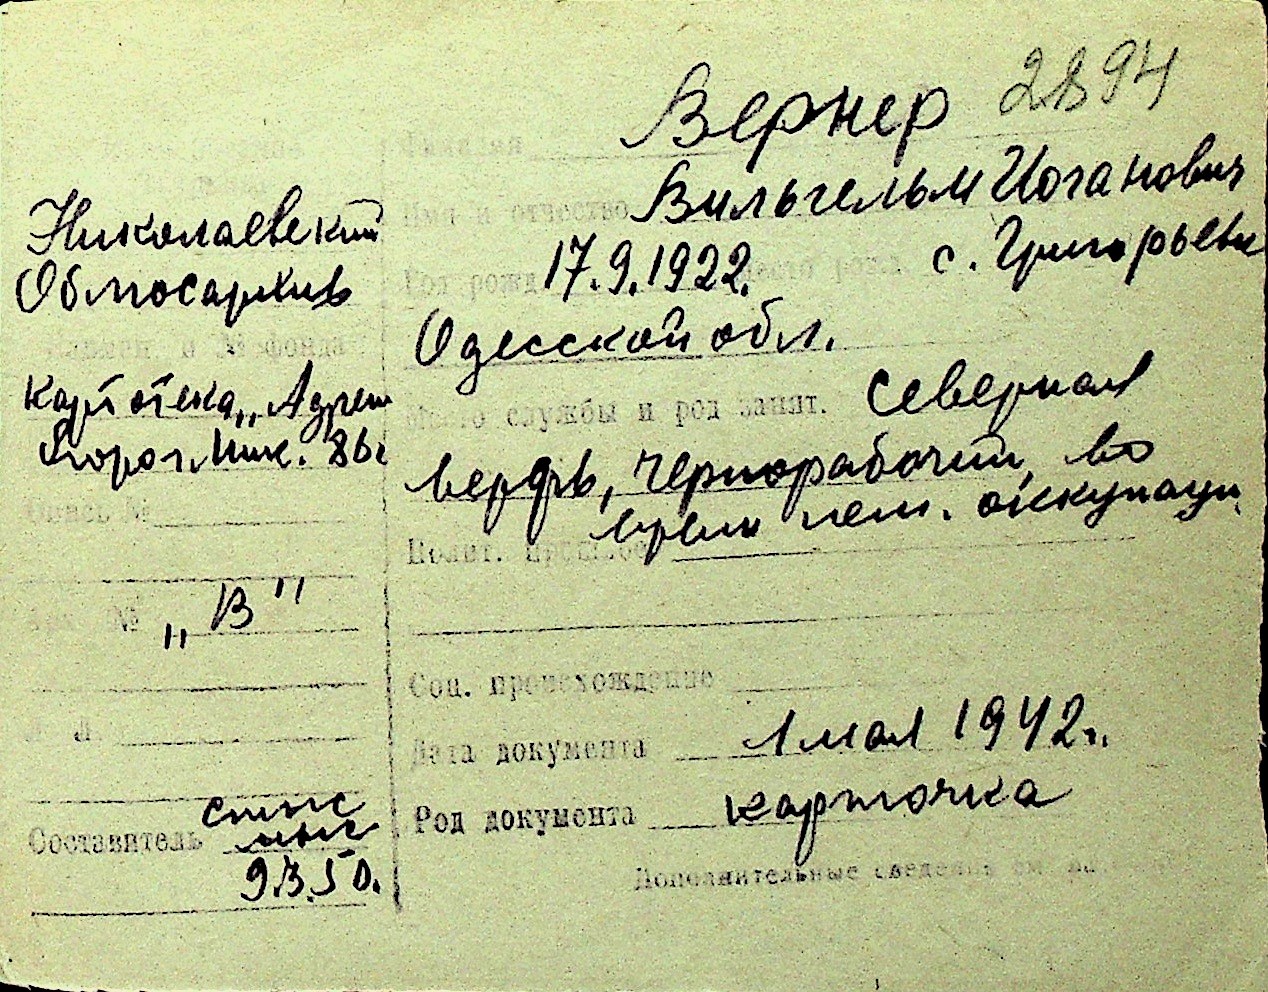 2894
Фамилия Вернер
Имя и отчество Вильгельм Иоганович
Год рожд 17.9.1922. Место рожд. с. Григорьевк
Одесской обл.
Место службы и род занят. Северная
верфь, чернорабочий, во
время нем. оккупации
Полит. прошлое
Соц. происхождение
Дата документа 1 мая 1942 г.
Род документа карточка
Дополнительные сведения см на
Николаевский
Облгосархив
Наимен. и № фонда
Картотека „Адресн
Опись №
№ „В"
Л. Л.
Составитель
9.3.50.